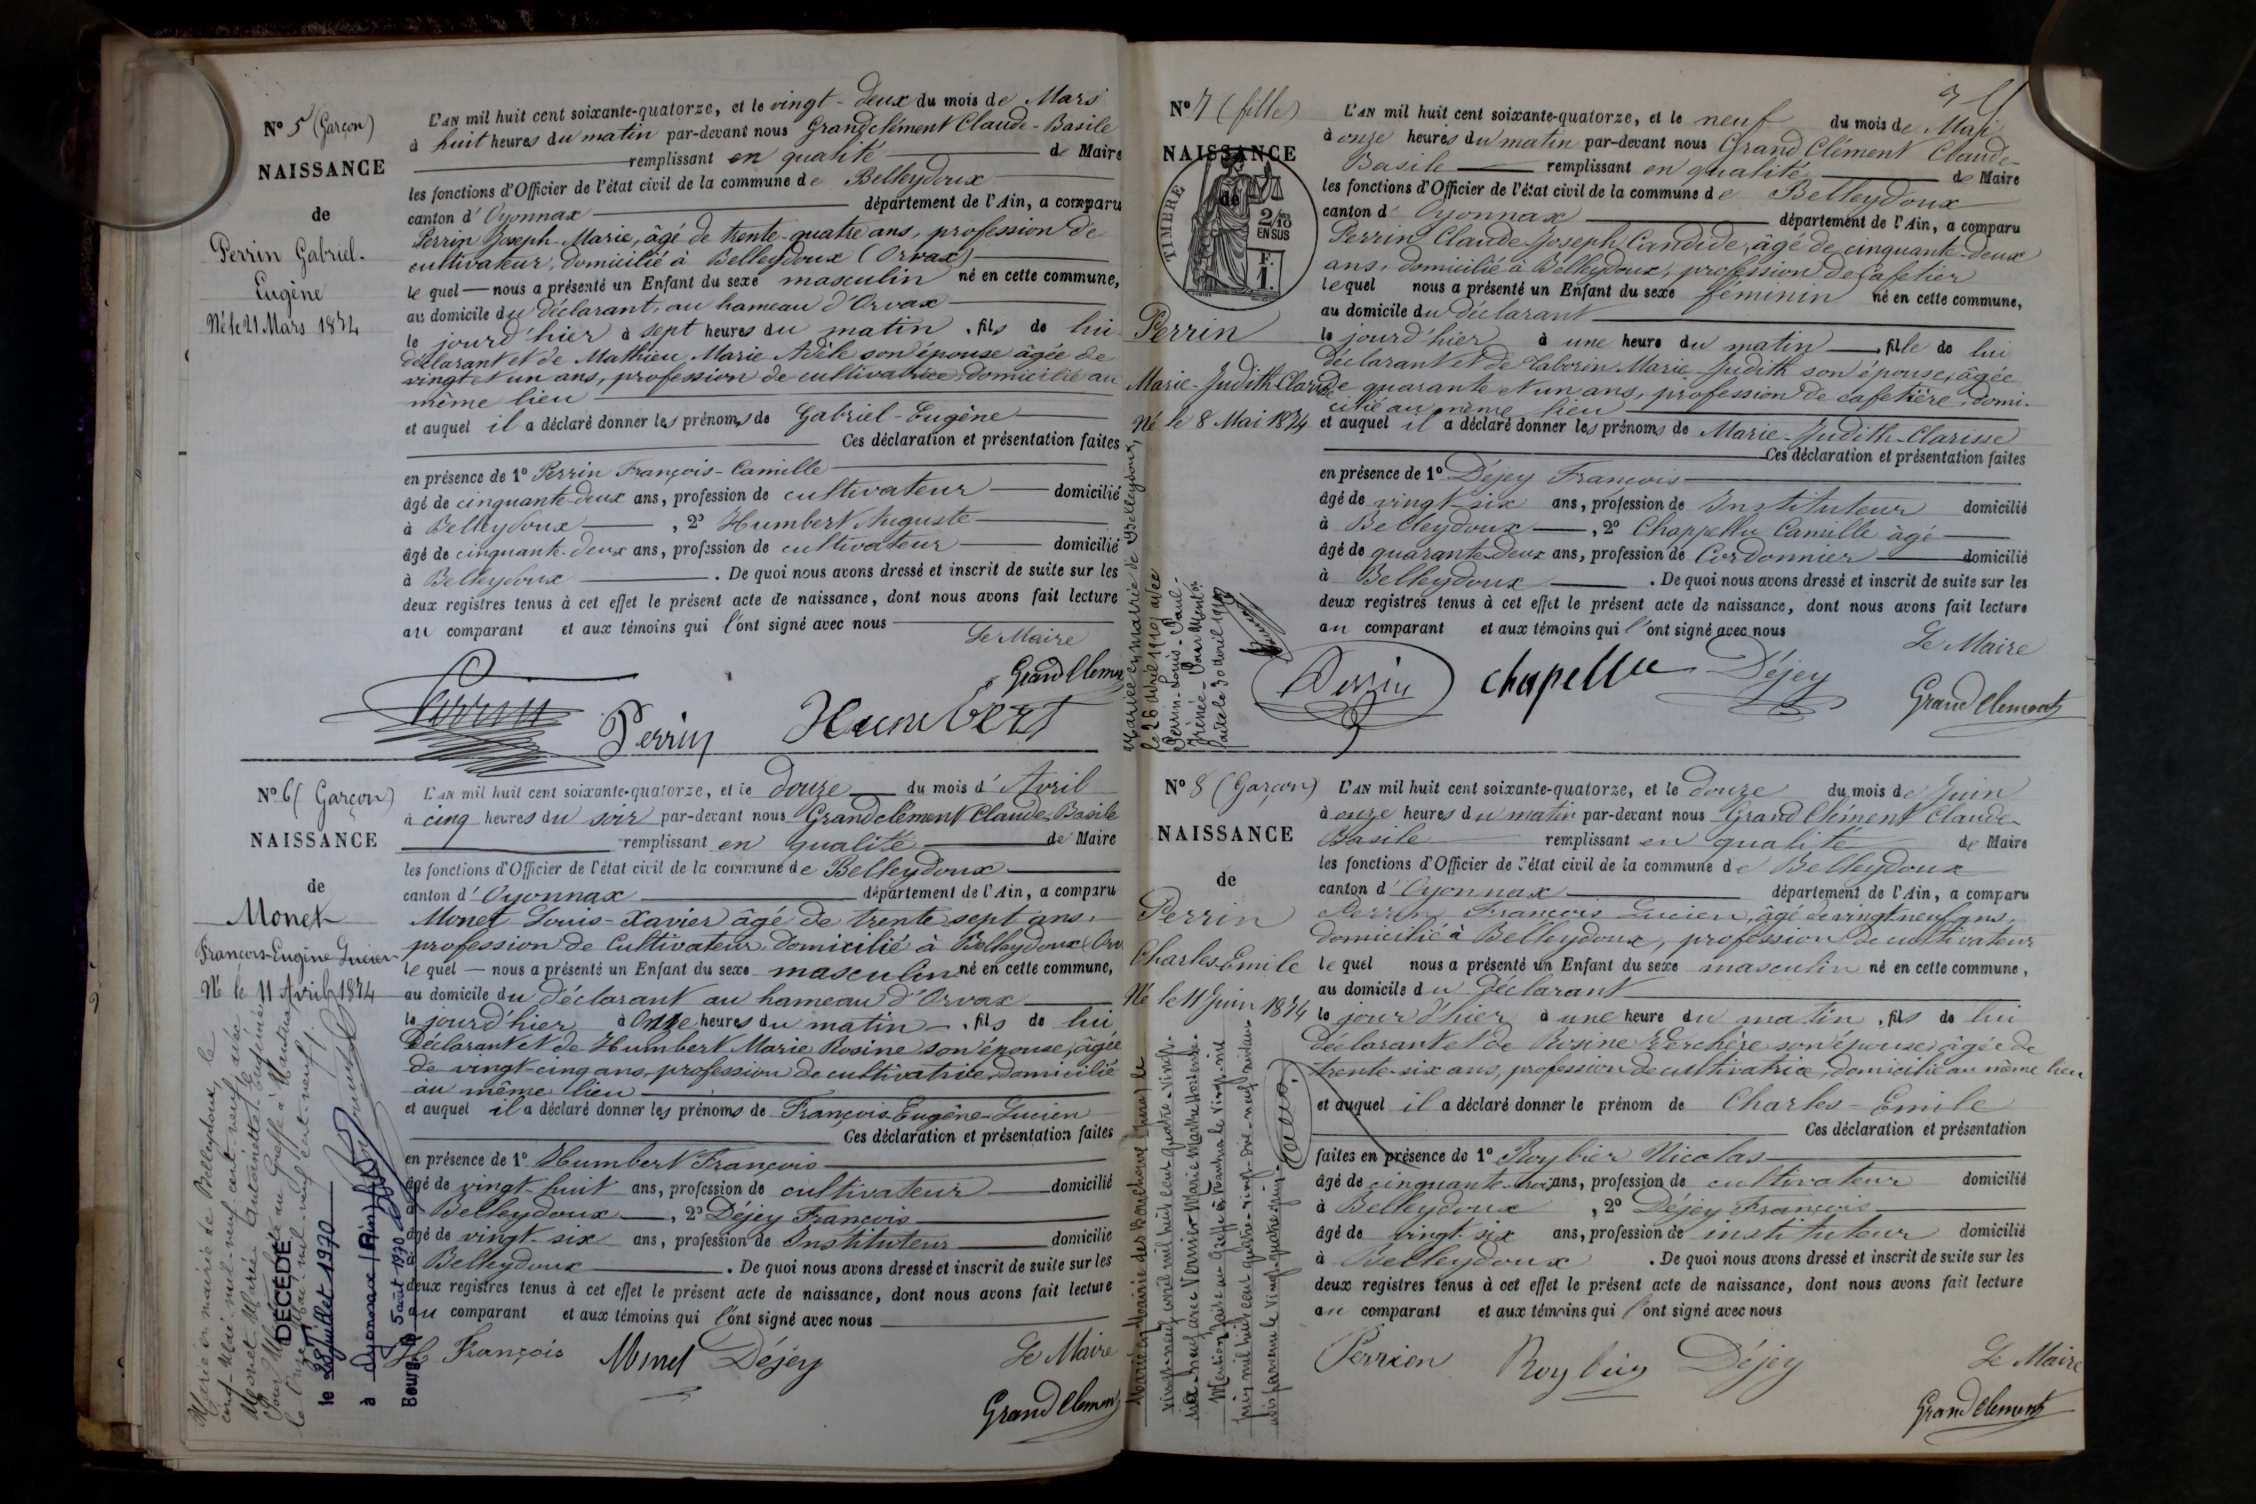 N° 5 (Garçon)
NAISSANCE
de
Perrin Gabriel-
Eugène
Né le 21 Mars 1874
L'AN mil huit cent soixante-quatorze, et le vingt-deux du mois de Mars
à huit heures du matin par-devant nous Grandclément Claude-Basile
remplissant en qualité de Maire
les fonctions d'Officier de l'état civil de la commune de Belleydoux
canton d'Oyonnax département de l'Ain, a comparu
Perrin Joseph-Marie, âgé de trente-quatre ans, profession de
cultivateur, domicilié à Belleydoux (Orvax)
lequel nous a présenté un Enfant du sexe masculin né en cette commune,
au domicile du déclarant, au hameau d'Orvax
le jour d'hier à sept heures du matin, fils de lui
déclarant et de Mathieu Marie Adèle son épouse âgée de
vingt et un ans, profession de cultivatrice domicilié au
même lieu
et auquel il a déclaré donner les prénoms de Gabriel-Eugène
Ces déclaration et présentation faites
en présence de 1° Perrin François-Camille
âgé de cinquante-deux ans, profession de cultivateur domicilié
à Belleydoux, 2° Humbert Auguste
âgé de cinquante-deux ans, profession de cultivateur domicilié
à Belleydoux. De quoi nous avons dressé et inscrit de suite sur les
deux registres tenus à cet effet le présent acte de naissance, dont nous avons fait lecture
au comparant et aux témoins qui l'ont signé avec nous
Le Maire
GrandClement
Perrin Perrin Humbert
N° 6 (Garçon)
NAISSANCE
de
Monet
François-Eugène-Lucien
Né le 11 Avril 1874
L'AN mil huit cent soixante-quatorze, et le douze du mois d'Avril
à cinq heures du soir par-devant nous Grandclément Claude-Basile
remplissant en qualité de Maire
les fonctions d'Officier de l'état civil de la commune de Belleydoux
canton d'Oyonnax département de l'Ain, a comparu
Monet Louis-Xavier âgé de trente sept ans,
profession de Cultivateur domicilié à Belleydoux (Orv
lequel nous a présenté un Enfant du sexe masculin né en cette commune,
au domicile du déclarant au hameau d'Orvax
le jour d'hier à Onze heures du matin, fils de lui
Déclarant et de Humbert Marie Rosine son épouse, âgée
de vingt-cinq ans, profession de cultivatrice domicilié
au même lieu
et auquel il a déclaré donner les prénoms de François Eugène-Lucien
Ces déclaration et présentation faites
en présence de 1° Humbert François
âgé de vingt-huit ans, profession de cultivateur domicilié
à Belleydoux, 2° Déjey François
âgé de vingt-six ans, profession de Instituteur domicilié
à Belleydoux. De quoi nous avons dressé et inscrit de suite sur les
deux registres tenus à cet effet le présent acte de naissance, dont nous avons fait lecture
au comparant et aux témoins qui l'ont signé avec nous
H François Monet Déjey
Le Maire
GrandClement
Marié en mairie de Belleydoux, le
Monet Marie Antoinette Eugénie
DÉCÉDÉ
le 28 Juillet 1970
à Oyonnax (Ain)
Bourg, le 5 août 1970
N° 7 (fille)
NAISSANCE
de
TIMBRE
2/10
EN SUS
F.
1.
Perrin
Marie-Judith-Clarisse
Né le 8 Mai 1874
Mariée en mairie de Belleydoux,
le 26 avril 1910 avec
Perrin-Louis-Paul-
Irénée - Pour Mention
faite le 30 avril 1910
L'AN mil huit cent soixante-quatorze, et le neuf du mois de Mai
à onze heures du matin par-devant nous Grand Clément Claude-
Basile remplissant en qualité de Maire
les fonctions d'Officier de l'état civil de la commune de Belleydoux
canton d'Oyonnax département de l'Ain, a comparu
Perrin Claude Joseph Candide, âgé de cinquante-deux
ans, domicilié à Belleydoux, profession de Cafetier
lequel nous a présenté un Enfant du sexe féminin né en cette commune,
au domicile du déclarant
le jour d'hier à une heure du matin, fille de lui
déclarant et de Taborin Marie Judith son épouse, âgée
de quarante et un ans, profession de cafetière, domi-
cilié au même lieu
et auquel il a déclaré donner les prénoms de Marie-Judith-Clarisse
Ces déclaration et présentation faites
en présence de 1° Déjey François
âgé de vingt-six ans, profession de Instituteur domicilié
à Belleydoux, 2° Chappellu Camille âgé
âgé de quarante-deux ans, profession de Cordonnier domicilié
à Belleydoux. De quoi nous avons dressé et inscrit de suite sur les
deux registres tenus à cet effet le présent acte de naissance, dont nous avons fait lecture
au comparant et aux témoins qui l'ont signé avec nous
Le Maire
Perrin chapellu Déjey
GrandClement
N° 8 (Garçon)
NAISSANCE
de
Perrin
Charles-Emile
Né le 11 Juin 1874
L'AN mil huit cent soixante-quatorze, et le douze du mois de Juin
à onze heures du matin par-devant nous Grand Clément Claude-
Basile remplissant en qualité de Maire
les fonctions d'Officier de l'état civil de la commune de Belleydoux
canton d'Oyonnax département de l'Ain, a comparu
Perrin François Lucien, âgé de vingt neuf ans,
domicilié à Belleydoux, profession de cultivateur
lequel nous a présenté un Enfant du sexe masculin né en cette commune,
au domicile du Déclarant
le jour d'hier à une heure du matin, fils de lui
déclarant et de Rosine Verchère son épouse, âgée de
trente-six ans, profession de cultivatrice, domicilié au même lieu
et auquel il a déclaré donner le prénom de Charles-Emile
Ces déclaration et présentation
faites en présence de 1° Roybier Nicolas
âgé de cinquante ans, profession de cultivateur domicilié
à Belleydoux, 2° Déjey François
âgé de vingt-six ans, profession de instituteur domicilié
à Belleydoux. De quoi nous avons dressé et inscrit de suite sur les
deux registres tenus à cet effet le présent acte de naissance, dont nous avons fait lecture
au comparant et aux témoins qui l'ont signé avec nous
Perrin Roybier Déjey
Le Maire
GrandClement